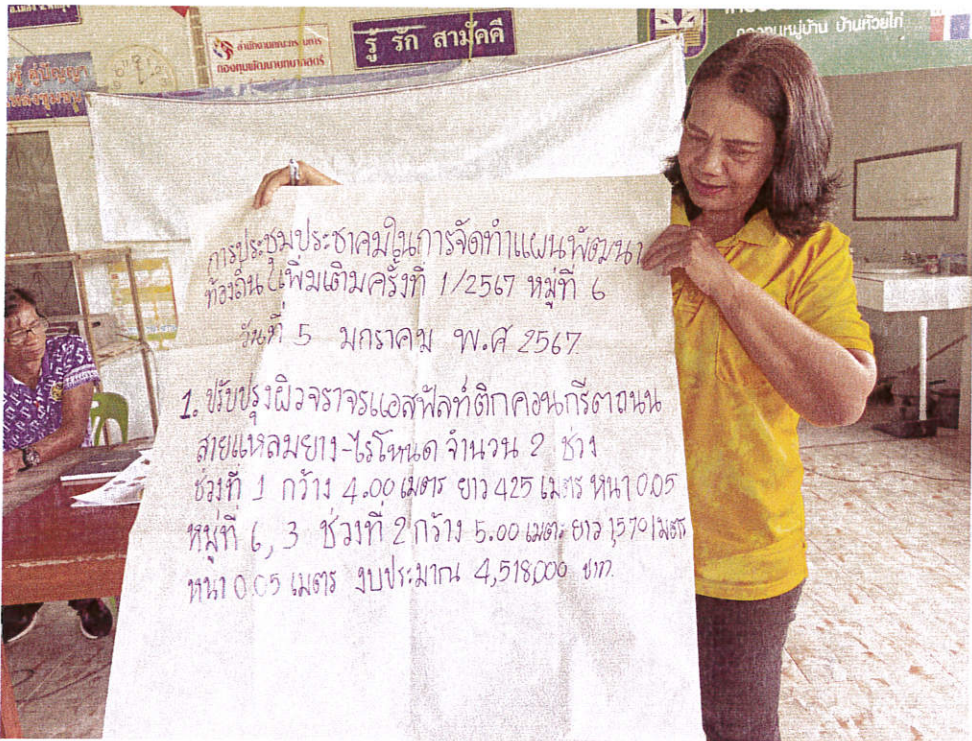 รู้ รัก สามัคคี
สำนักงานคณะกรรมการ
กองทุนพัฒนาบทบาทสตรี
กองทุนหมู่บ้าน บ้านห้วยไก่
การประชุมประชาคมในการจัดทำแผนพัฒนา
ท้องถิ่น เพิ่มเติมครั้งที่ 1/2567 หมู่ที่ 6
วันที่ 5 มกราคม พ.ศ 2567
1. ปรับปรุงผิวจราจรแอสฟัลท์ติกคอนกรีตถนน
สายแหลมยาง-ไร่โหนด จำนวน 2 ช่วง
ช่วงที่ 1 กว้าง 4.00 เมตร ยาว 425 เมตร หนา 0.05
หมู่ที่ 6, 3 ช่วงที่ 2 กว้าง 5.00 เมตร ยาว 1,570 เมตร
หนา 0.05 เมตร งบประมาณ 4,518,000 บาท